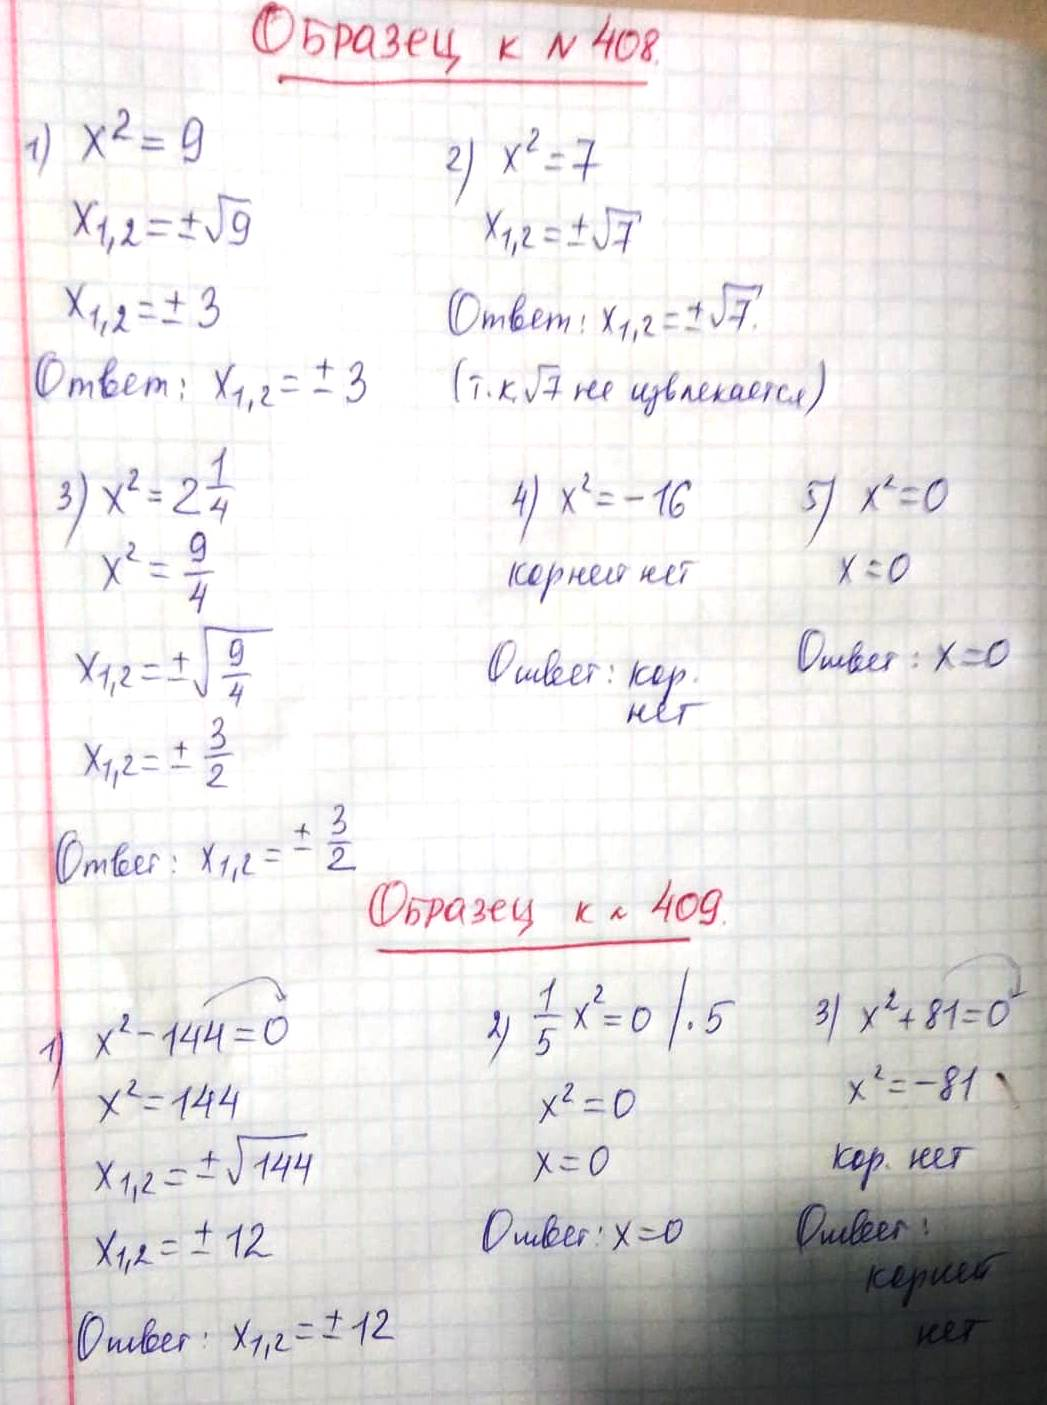 Образец к N 408.
1) x² = 9
x₁,₂ = ±√9
x₁,₂ = ± 3
Ответ: x₁,₂ = ± 3
2) x² = 7
x₁,₂ = ±√7
Ответ: x₁,₂ = ±√7.
(т.к. √7 не извлекается)
3) x² = 2 1/4
x² = 9/4
x₁,₂ = ±√(9/4)
x₁,₂ = ± 3/2
Ответ: x₁,₂ = ± 3/2
4) x² = -16
корней нет
Ответ: кор.
нет
5) x² = 0
x = 0
Ответ: x = 0
Образец к N 409.
1) x² - 144 = 0
x² = 144
x₁,₂ = ±√144
x₁,₂ = ± 12
Ответ: x₁,₂ = ± 12
2) 1/5 x² = 0 /· 5
x² = 0
x = 0
Ответ: x = 0
3) x² + 81 = 0
x² = -81
кор. нет
Ответ:
корней
нет